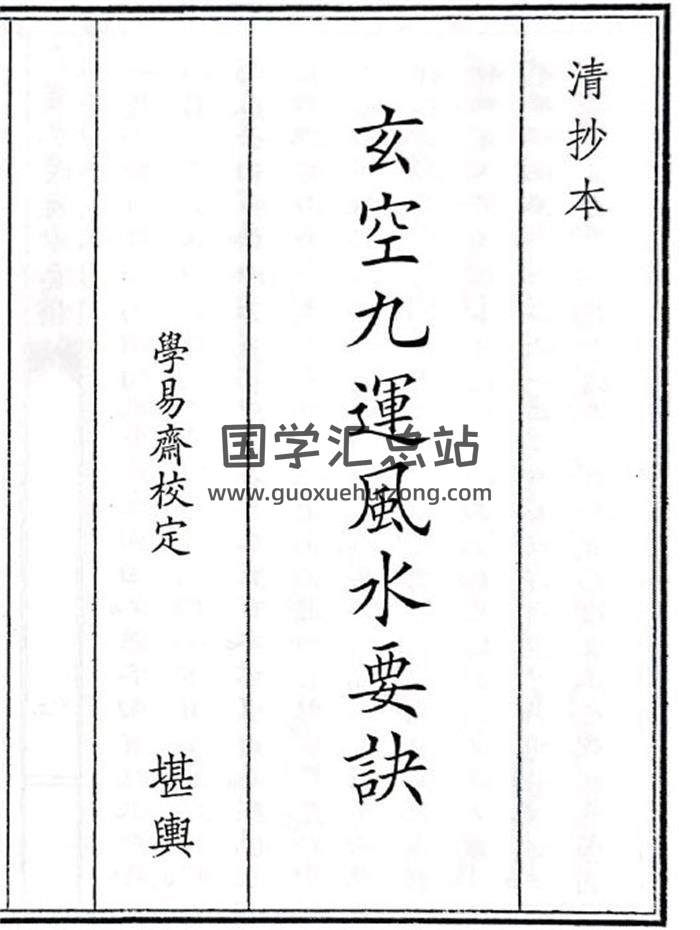 清抄本
玄空九運風水要訣
學易齋校定
堪輿
国学汇总站
www.guoxuehuizong.com